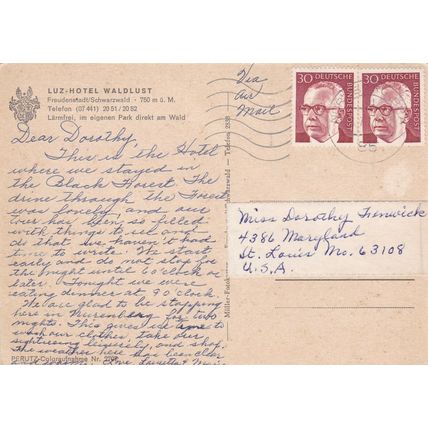 LUZ-HOTEL WALDLUST
Freudenstadt/Schwarzwald · 750 m ü. M.
Telefon (07 441) 20 51 / 20 82
Lärmfrei, im eigenen Park direkt am Wald
Via
Air
Mail
30 DEUTSCHE BUNDESPOST
30 DEUTSCHE BUNDESPOST
Dear Dorothy,
This is the Hotel
where we stayed in
the Black Forest. The
drive through the Forest
was lovely and our
days has been so filled
with things to see and
do that we haven't had
time to write. We start
early and do not stop for
the night until 6 o'clock or
later. Tonight we were
eating dinner at 9 o'clock.
We are glad to be stopping
here in Nuremberg for two
nights. This gives us time to
wash our clothes, take our
sightseeing leisurely, and shop.
The weather here has been
and Love, Lauretta &
Miss Dorothy Fenwick
4386 Maryland
St. Louis Mo. 63108
U.S.A.
PERUTZ-Coloraufnahme Nr.
Schwarzwald - Telefon 2538